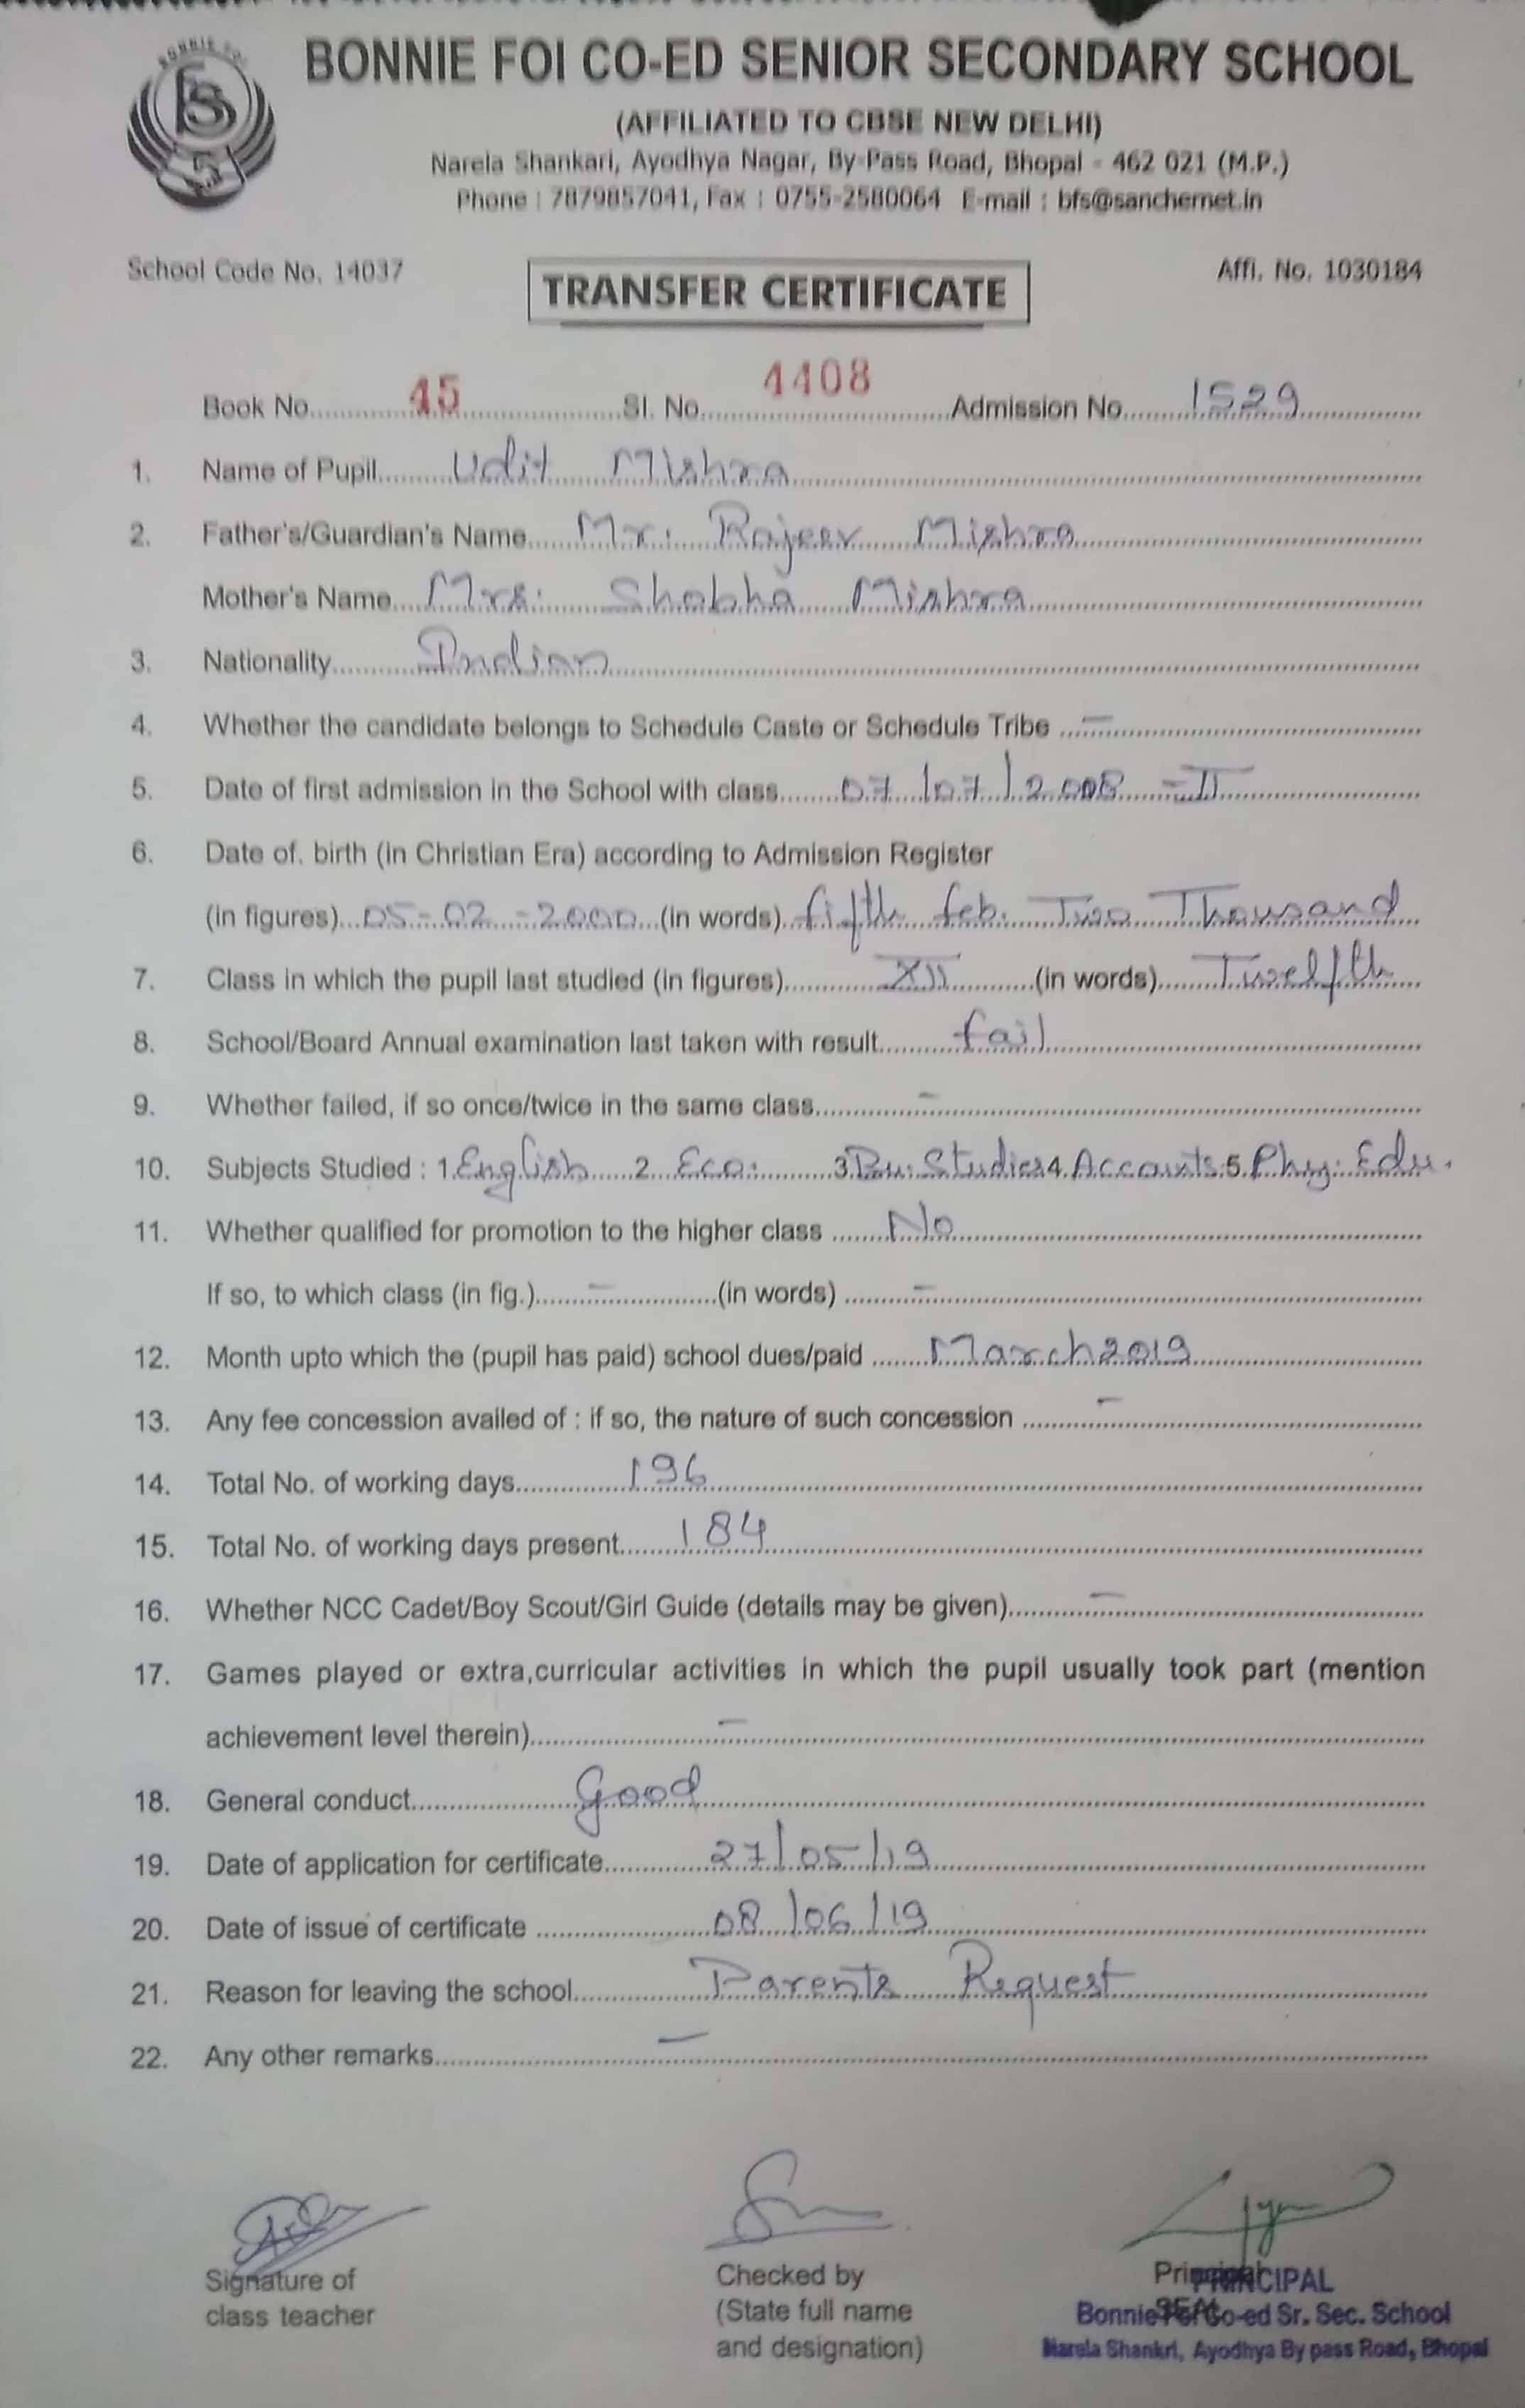 BONNIE FOI
BONNIE FOI CO-ED SENIOR SECONDARY SCHOOL
(AFFILIATED TO CBSE NEW DELHI)
Narela Shankari, Ayodhya Nagar, By-Pass Road, Bhopal - 462 021 (M.P.)
Phone : 7879857041, Fax : 0755-2580064 E-mail : bfs@sanchernet.in
School Code No. 14037 TRANSFER CERTIFICATE Affi. No. 1030184
Book No. 45 Sl. No. 4408 Admission No. 1529
1. Name of Pupil Udit Mishra
2. Father's/Guardian's Name Mr. Rajeev Mishra
Mother's Name Mrs. Shobha Mishra
3. Nationality Indian
4. Whether the candidate belongs to Schedule Caste or Schedule Tribe –
5. Date of first admission in the School with class 07/07/2008 - II
6. Date of. birth (in Christian Era) according to Admission Register
(in figures) 05-02-2000 (in words) fifth feb. Two Thousand
7. Class in which the pupil last studied (in figures) XII (in words) Twelfth
8. School/Board Annual examination last taken with result fail
9. Whether failed, if so once/twice in the same class –
10. Subjects Studied : 1. English 2. Eco. 3. Bu. Studies 4. Accounts 5. Phy. Edu.
11. Whether qualified for promotion to the higher class No
If so, to which class (in fig.) – (in words) –
12. Month upto which the (pupil has paid) school dues/paid March 2019
13. Any fee concession availed of : if so, the nature of such concession –
14. Total No. of working days 196
15. Total No. of working days present 184
16. Whether NCC Cadet/Boy Scout/Girl Guide (details may be given) –
17. Games played or extra,curricular activities in which the pupil usually took part (mention
achievement level therein) –
18. General conduct Good
19. Date of application for certificate 27/05/19
20. Date of issue of certificate 08/06/19
21. Reason for leaving the school Parents Request
22. Any other remarks –
Signature of Checked by Principal PRINCIPAL
class teacher (State full name SEAL Bonnie Foi Co-ed Sr. Sec. School
and designation) Narela Shankri, Ayodhya By pass Road, Bhopal